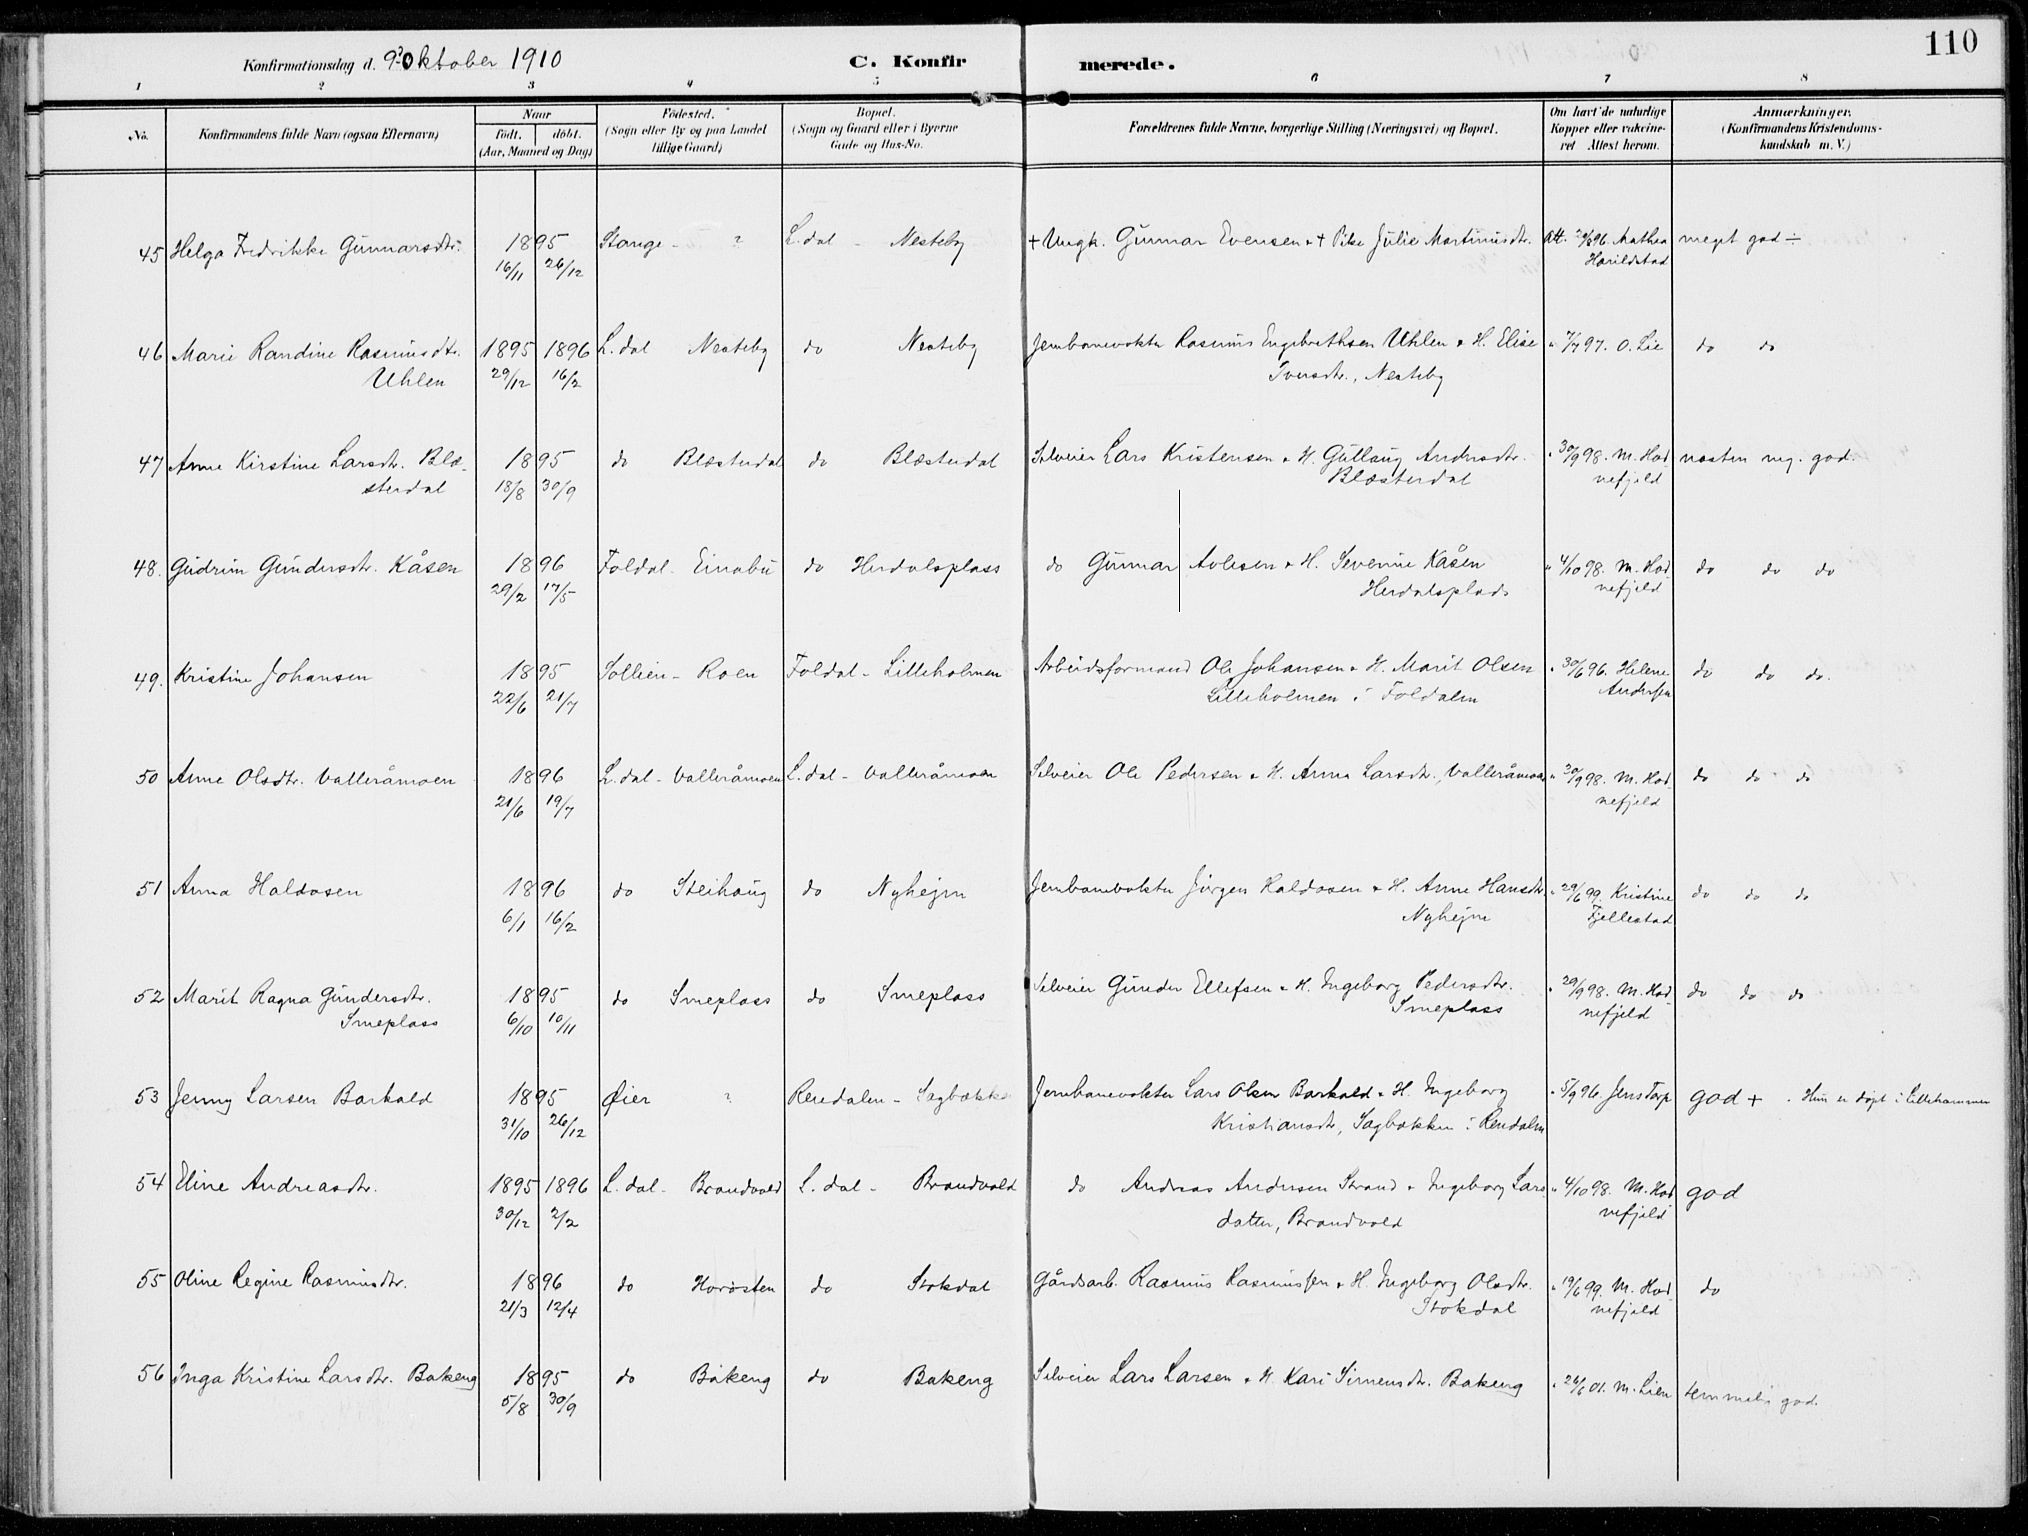 110
Konfirmationsdag d. 9 Oktober 1910 C. Konfirmerede.
1 2 3 4 5 6 7 8
No. Konfirmandens fulde Navn (ogsaa Efternavn) Naar Födested. (Sogn eller By og paa Landet tillige Gaard) Bopæl. (Sogn og Gaard eller i Byerne Gade og Hus-No. Forældrenes fulde Navne, borgerlige Stilling (Næringsvei) og Bopæl. Om havt de naturlige Kopper eller vakcineret Attest herom. Anmærkninger. (Konfirmandens Kristendomskundskab m. V.)
födt. döbt.
(Aar, Maaned og Dag)
45 Helga Fredrikke Gunnarsdtr. 1895 Stange - ? L.dal - Nesteby + Ungk. Gunnar Evensen & + Pike Julie Martinusdtr. Att. 96. Mathea meget god ÷
16/11 26/12 Harildstad
46 Marie Randine Rasmusdtr. 1895 1896 L.dal Nesteby do Nesteby Jernbanevokter Rasmus Engebrethsen Uhlen & H. Elise " 7/7 97. O. Lie do do
Uhlen 29/12 16/2 Iversdtr., Nesteby
47 Anne Kirstine Larsdtr. Blæ- 1895 do Blæsterdal do Blæsterdal Selveier Lars Kristensen & H. Gullaug Andersdtr. " 30/9 98. M. Hod- næsten meg. god.
sterdal 18/8 30/9 Blæsterdal nefjeld
48. Gudrun Gundersdtr. Kåsen 1896 Foldal - Einabu do Herdalsplass do Gunnar Avlesen & H. Severine Kåsen " 4/10 98. M. Hod- do do do
29/2 17/5 Herdalsplads nefjeld
49. Kristine Johansen 1895 Sollien - Roen Foldal - Lilleholmen Arbeidsformand Ole Johansen & H. Marit Olsen " 30/6 96. Helene do do do.
22/6 21/7 Lilleholmen i Foldalen Andersen
50 Anne Olsdtr. Valleråmoen 1896 L.dal - Valleråmoen L.dal - Valleråmoen Selveier Ole Pedersen & H. Anna Larsdtr., Valleråmoen " 30/9 98. M. Hod- do do do
21/6 19/7 nefjeld
51 Anna Haldosen 1896 do Steihaug do Nyhejm Jernbanevokter Jörgen Haldosen & H. Anne Hansdtr. " 29/6 99. Kristine do do do
6/1 16/2 Nyhejm Fjellestad
52 Marit Ragna Gundersdtr. 1895 do Smeplass do Smeplass Selveier Gunder Ellefsen & H. Ingeborg Pedersdtr. " 29/9 98. M. Hod- do do do
Smeplass 6/10 10/11 Smeplass nefjeld
53 Jenny Larsen Barkald 1895 Øier ? Rendalen - Sagbækken Jernbanevokter Lars Olsen Barkald & H. Ingeborg " 5/9 96. Jens Torp god + . Hun er döpt i Lillehammer
31/10 26/12 Kristiansdtr, Sagbækken i Rendalen
54 Eline Andreasdtr. 1895 1896 L.dal - Brandvold L.dal - Brandvold do Andreas Andersen Strand & Ingeborg Lars- " 4/10 98. M. Hod- god
30/12 2/2 datter, Brandvold nefjeld
55 Oline Regine Rasmusdtr. 1896 do do Stokdal Gårdsarb. Rasmus Rasmussen & H. Ingeborg Olsdtr. " 19/6 99. M. Hod- do
21/3 12/4 Stokdal nefjeld
56 Inga Kristine Larsdtr. Bakeng 1895 do Bakeng do Bakeng Selveier Lars Larsen & H Kari Simensdtr. Bakeng " 26/6 01. M. Lien temmelig god.
5/8 30/9